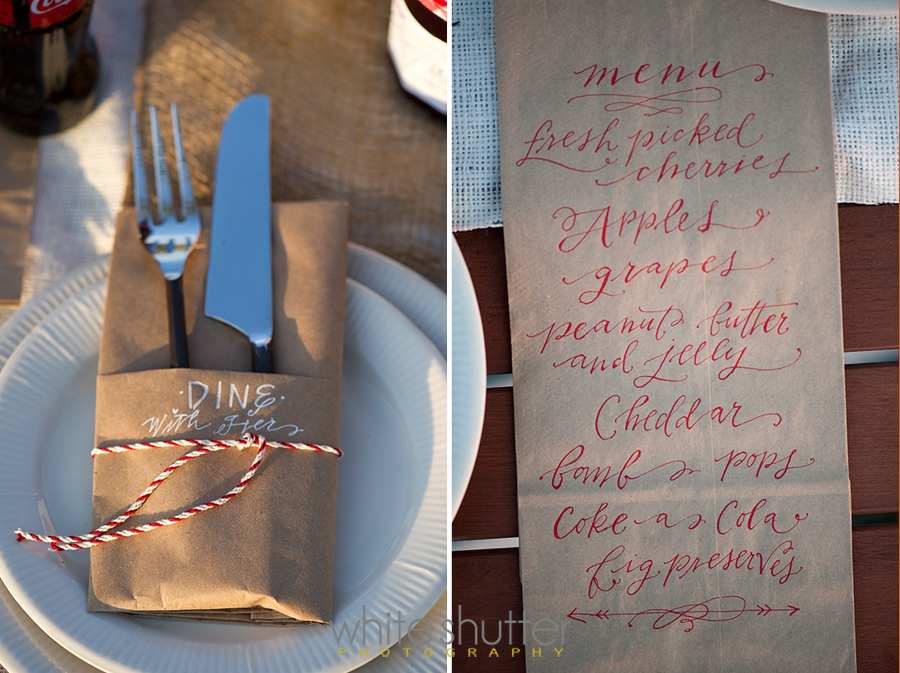 Coca-Cola
·DINE·
with Giers
menu
fresh picked
cherries
Apples
grapes
peanut butter
and jelly
Cheddar
bomb pops
Coke a Cola
fig preserves
white shutter
PHOTOGRAPHY